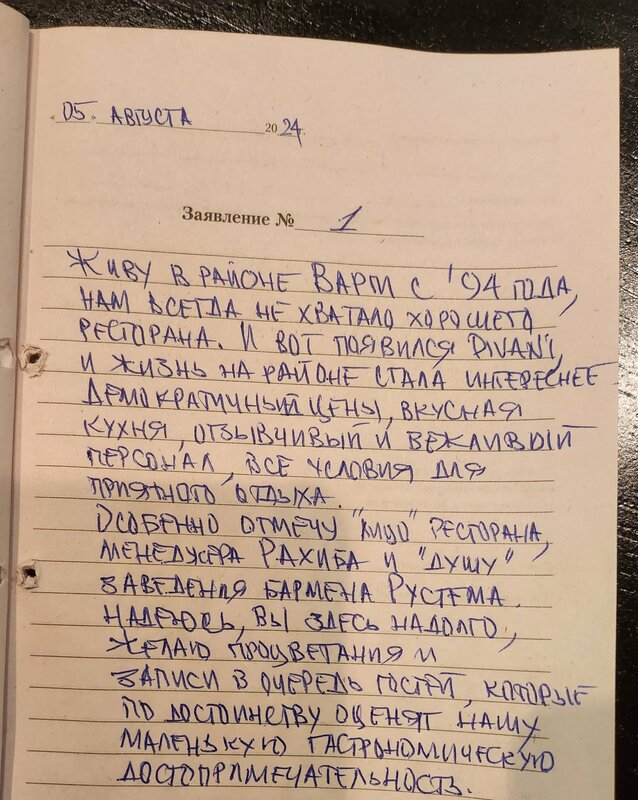 «05» АВГУСТА 2024
Заявление № 1
ЖИВУ В РАЙОНЕ ВАРГИ С '94 ГОДА,
НАМ ВСЕГДА НЕ ХВАТАЛО ХОРОШЕГО
РЕСТОРАНА. И ВОТ ПОЯВИЛСЯ DIVANI,
И ЖИЗНЬ НА РАЙОНЕ СТАЛА ИНТЕРЕСНЕЕ
ДЕМОКРАТИЧНЫЙ ЦЕНЫ, ВКУСНАЯ
КУХНЯ, ОТЗЫВЧИВЫЙ И ВЕЖЛИВЫЙ
ПЕРСОНАЛ, ВСЕ УСЛОВИЯ ДЛЯ
ПРИЯТНОГО ОТДЫХА.
ОСОБЕННО ОТМЕЧУ "ЛИЦО" РЕСТОРАНА,
МЕНЕДЖЕРА РАХИБА И "ДУШУ"
ЗАВЕДЕНИЯ БАРМЕНА РУСТЕМА.
НАДЕЮСЬ, ВЫ ЗДЕСЬ НАДОЛГО,
ЖЕЛАЮ ПРОЦВЕТАНИЯ И
ЗАПИСИ В ОЧЕРЕДЬ ГОСТЕЙ, КОТОРЫЕ
ПО ДОСТОИНСТВУ ОЦЕНЯТ НАШУ
МАЛЕНЬКУЮ ГАСТРОНОМИЧЕСКУЮ
ДОСТОПРИМЕЧАТЕЛЬНОСТЬ.